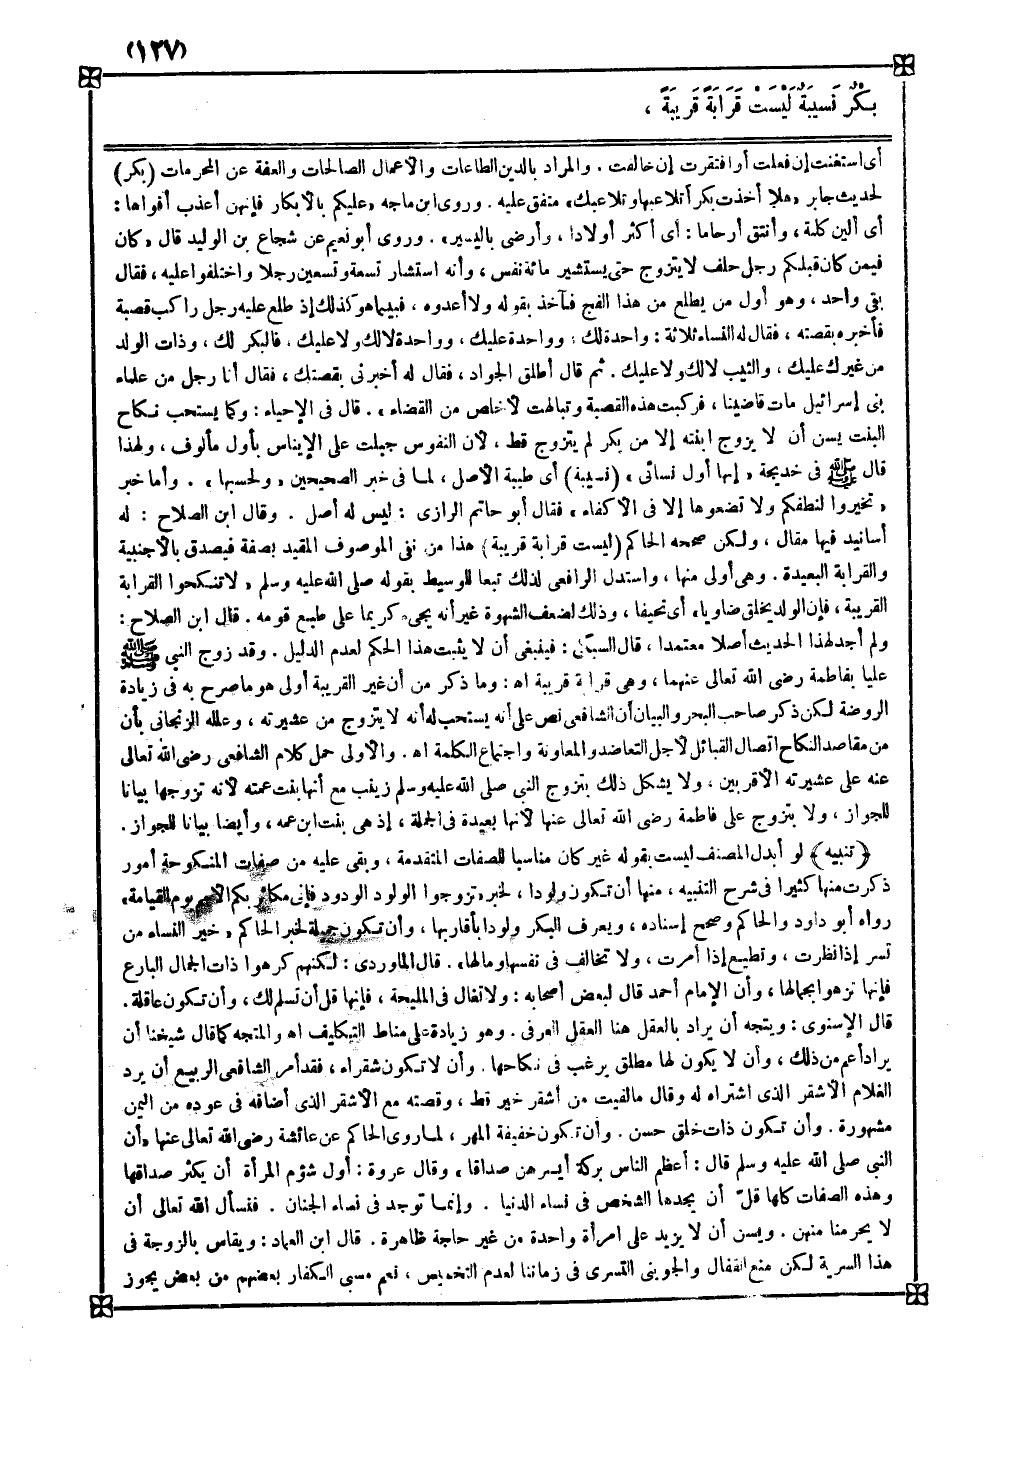 (١٢٧)
بِكْرٌ نَسِيبَةٌ لَيْسَتْ قَرَابَةً قَرِيبَةً ،
أى استغنت إن فعلت أو افتقرت إن خالفت . والمراد بالدين الطاعات والأعمال الصالحات والعفة عن المحرمات (بكر)
لحديث جابر «هلا أخذت بكرا تلاعبها وتلاعبك» متفق عليه . وروى ابن ماجه «عليكم بالأبكار فإنهن أعذب أفواها :
أى ألين كلمة ، وأنتق أرحاما : أى أكثر أولادا ، وأرضى باليسير» . وروى أبو نعيم عن شجاع بن الوليد قال «كان
فيمن كان قبلكم رجل حلف لا يتزوج حتى يستشير مائة نفس ، وأنه استشار تسعة وتسعين رجلا واختلفوا عليه ، فقال
بقى واحد ، وهو أول من يطلع من هذا الفج فآخذ بقوله ولا أعدوه ، فبينما هو كذلك إذ طلع عليه رجل راكب قصبة
فأخبره بقصته ، فقال له النساء ثلاثة : واحدة لك ، وواحدة عليك ، وواحدة لا لك ولا عليك ، فالبكر لك ، وذات الولد
من غيرك عليك ، والثيب لا لك ولا عليك . ثم قال أطلق الجواد ، فقال له أخبرنى بقصتك ، فقال أنا رجل من علماء
بنى إسرائيل مات قاضينا ، فركبت هذه القصبة وتبالهت لأخلص من القضاء» . قال فى الإحياء : وكما يستحب نكاح
البنت يسن أن لا يزوج ابنته إلا من بكر لم يتزوج قط ، لأن النفوس جبلت على الإيناس بأول مألوف ، ولهذا
قال ﷺ فى خديجة «إنها أول نسائى» (نسيبة) أى طيبة الأصل ، لما فى خبر الصحيحين «ولحسبها» . وأما خبر
«تخيروا لنطفكم ولا تضعوها إلا فى الأكفاء» فقال أبو حاتم الرازى : ليس له أصل . وقال ابن الصلاح : له
أسانيد فيها مقال ، ولكن صححه الحاكم (ليست قرابة قريبة) هذا من نفى الموصوف المقيد بصفة فيصدق بالأجنبية
والقرابة البعيدة . وهى أولى منها ، واستدل الرافعى لذلك تبعا للوسيط بقوله صلى الله عليه وسلم «لا تنكحوا القرابة
القريبة ، فإن الولد يخلق ضاويا» أى نحيفا ، وذلك لضعف الشهوة غير أنه يجىء كريما على طبع قومه . قال ابن الصلاح :
ولم أجد لهذا الحديث أصلا معتمدا ، قال السبكى : فينبغى أن لا يثبت هذا الحكم لعدم الدليل . وقد زوج النبى ﷺ
عليا بفاطمة رضى الله تعالى عنهما ، وهى قرابة قريبة اه : وما ذكر من أن غير القريبة أولى هو ما صرح به فى زيادة
الروضة لكن ذكر صاحب البحر والبيان أن الشافعى نص على أنه يستحب له أنه لا يتزوج من عشيرته ، وعلله الزنجانى بأن
من مقاصد النكاح اتصال القبائل لأجل التعاضد والمعاونة واجتماع الكلمة اه . والأولى حمل كلام الشافعى رضى الله تعالى
عنه على عشيرته الأقربين ، ولا يشكل ذلك بتزوج النبى صلى الله عليه وسلم زينب مع أنها بنت عمته لأنه تزوجها بيانا
للجواز ، ولا بتزوج على فاطمة رضى الله تعالى عنها لأنها بعيدة فى الجملة ، إذ هى بنت ابن عمه ، وأيضا بيانا للجواز .
(تنبيه) لو أبدل المصنف ليست بقوله غير كان مناسبا للصفات المتقدمة ، وبقى عليه من صفات المنكوحة أمور
ذكرت منها كثيرا فى شرح التنبيه ، منها أن تكون ولودا ، لخبر «تزوجوا الولود الودود فإنى مكاثر بكم الأمم يوم القيامة»
رواه أبو داود والحاكم وصحح إسناده ، ويعرف البكر ولودا بأقاربها ، وأن تكون جميلة لخبر الحاكم «خير النساء من
تسر إذا نظرت ، وتطيع إذا أمرت ، ولا تخالف فى نفسها ومالها» . قال الماوردى : لكنهم كرهوا ذات الجمال البارع
فإنها تزهو بجمالها ، وأن الإمام أحمد قال لبعض أصحابه : ولا تغال فى المليحة ، فإنها قل أن تسلم لك ، وأن تكون عاقلة .
قال الإسنوى : ويتجه أن يراد بالعقل هنا العقل العرفى . وهو زيادة على مناط التكليف اه والمتجه كما قال شيخنا أن
يراد أعم من ذلك ، وأن لا يكون لها مطلق يرغب فى نكاحها . وأن لا تكون شقراء ، فقد أمر الشافعى الربيع أن يرد
الغلام الأشقر الذى اشتراه له وقال ما لقيت من أشقر خير قط ، وقصته مع الأشقر الذى أضافه فى عوده من اليمن
مشهورة . وأن تكون ذات خلق حسن . وأن تكون خفيفة المهر ، لما روى الحاكم عن عائشة رضى الله تعالى عنها «أن
النبى صلى الله عليه وسلم قال : أعظم الناس بركة أيسرهن صداقا» وقال عروة : أول شؤم المرأة أن يكثر صداقها
وهذه الصفات كلها قلّ أن يجدها الشخص فى نساء الدنيا . وإنما توجد فى نساء الجنان . فنسأل الله تعالى أن
لا يحرمنا منهن . ويسن أن لا يزيد على امرأة واحدة من غير حاجة ظاهرة . قال ابن العماد : ويقاس بالزوجة فى
هذا السرية لكن منع القفال والجوينى التسرى فى زماننا لعدم التخميس ، نعم مسبى الكفار بعضهم من بعض يجوز